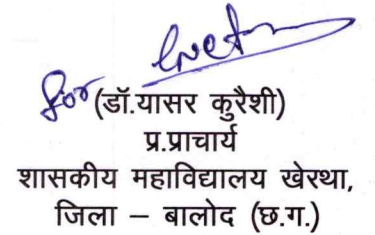 For
(डॉ.यासर कुरैशी)
प्र.प्राचार्य
शासकीय महाविद्यालय खेरथा,
जिला – बालोद (छ.ग.)